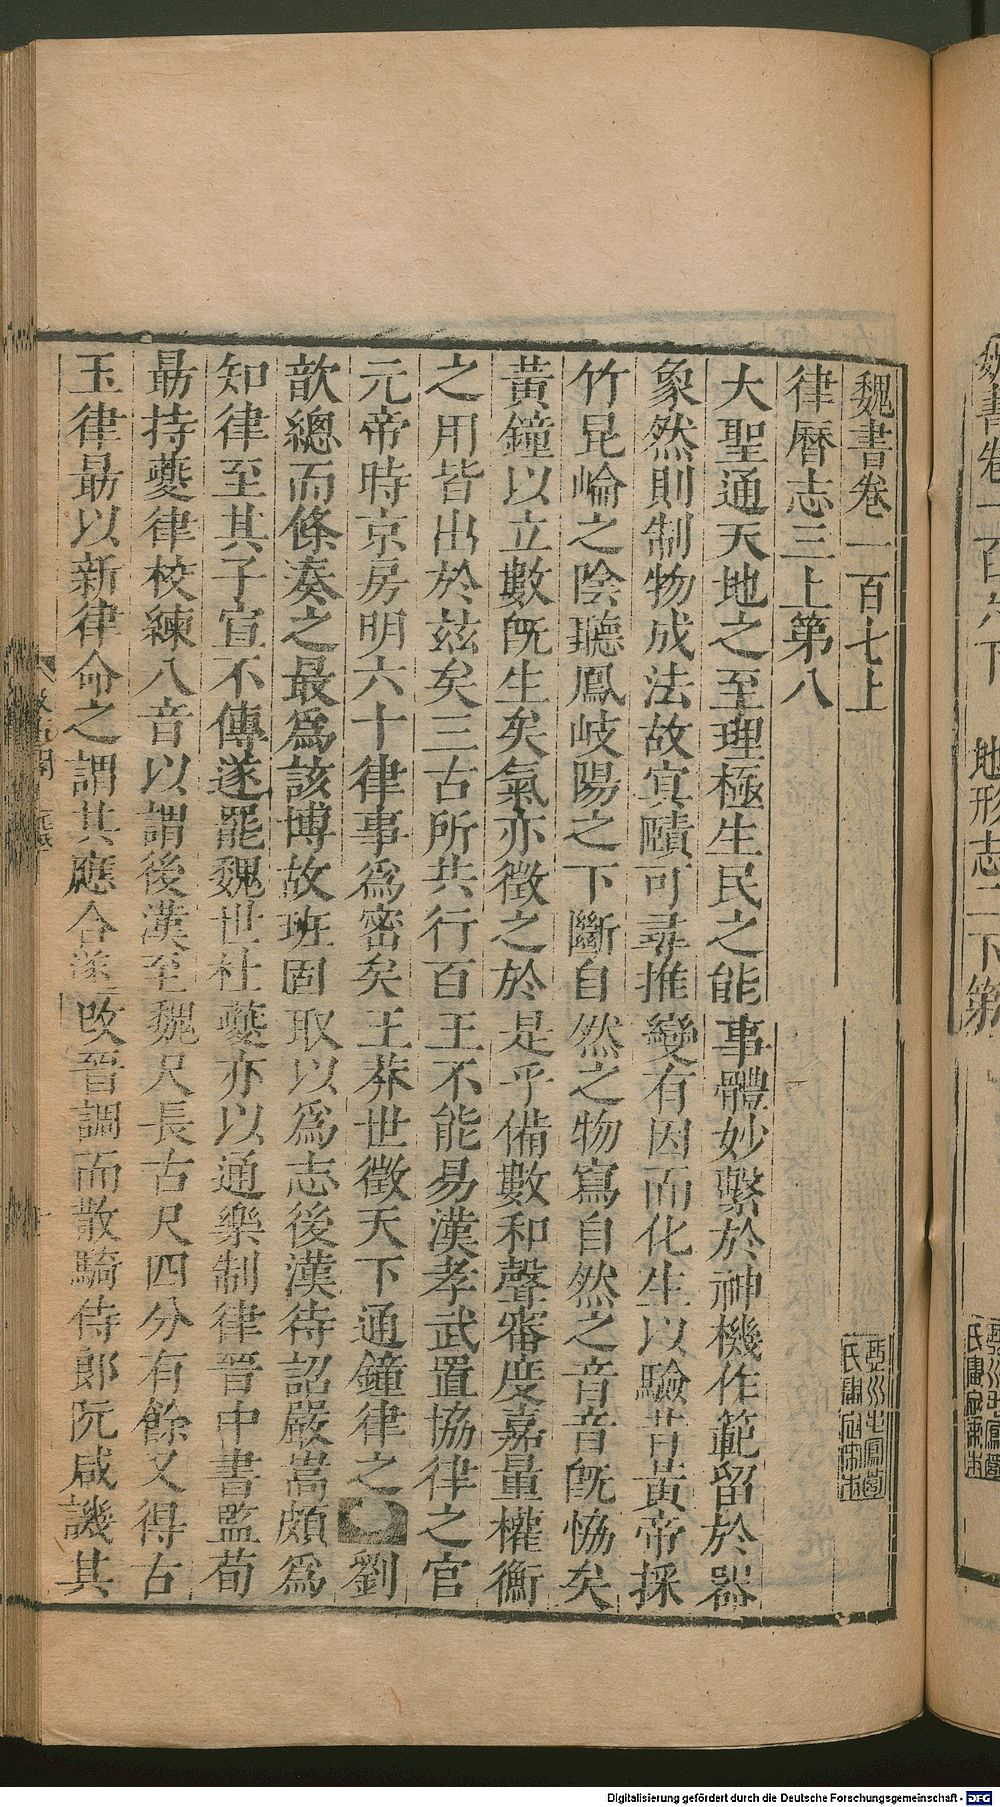 魏書卷一百七上
律曆志三上第八
大聖通天地之至理極生民之能事體妙繫於神機作範留於器
象然則制物成法故冥賾可尋推變有因而化生以驗昔黃帝採
竹昆崘之陰聽鳳岐陽之下斷自然之物寫自然之音音旣恊矣
黃鐘以立數旣生矣氣亦徵之於是乎備數和聲審度嘉量權衡
之用皆出於茲矣三古所共行百王不能易漢孝武置協律之官
元帝時京房明六十律事爲密矣王莽世徵天下通鐘律之劉
歆總而條奏之最爲該博故班固取以爲志後漢待詔嚴嵩頗爲
知律至其子宣不傳遂罷魏世杜夔亦以通樂制律晉中書監荀
勗持夔律校練八音以謂後漢至魏尺長古尺四分有餘又得古
玉律勗以新律命之謂其應合遂改晉調而散騎侍郎阮咸譏其
魏書卷一百六下
地形志二下第
Digitalisierung gefördert durch die Deutsche Forschungsgemeinschaft - DFG